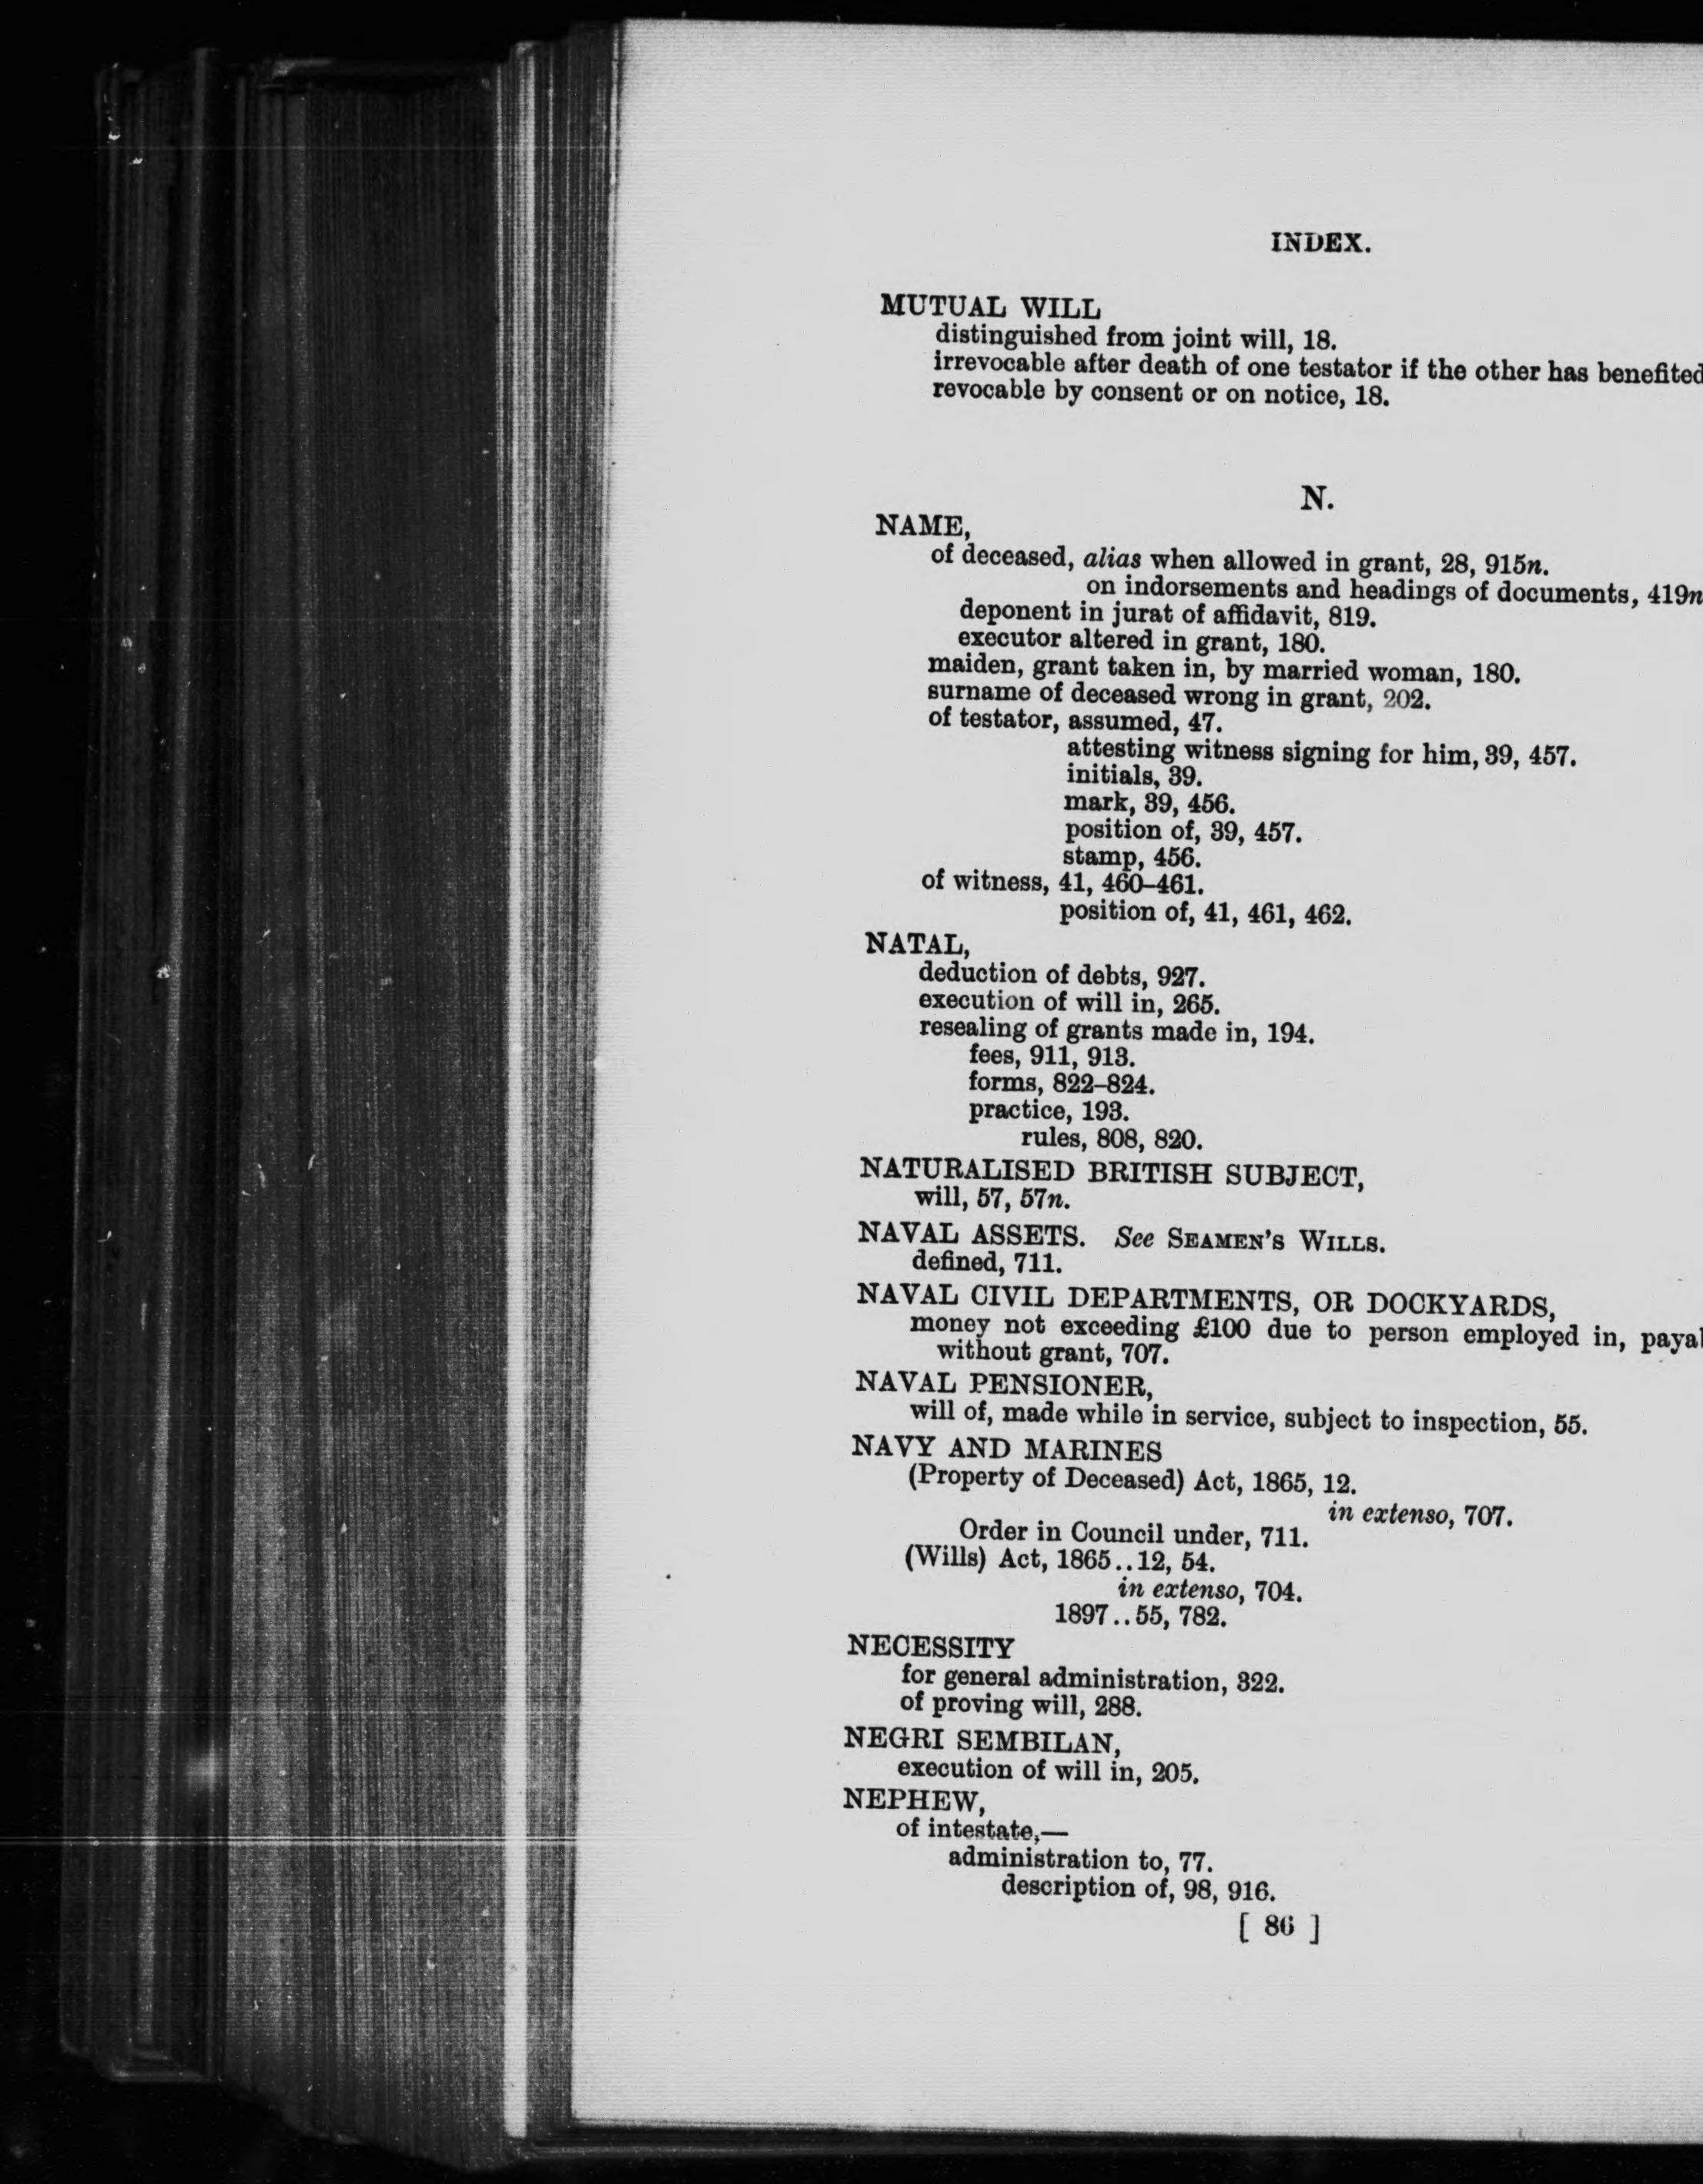 INDEX.
MUTUAL WILL
distinguished from joint will, 18.
irrevocable after death of one testator if the other has benefited
revocable by consent or on notice, 18.
N.
NAME,
of deceased, alias when allowed in grant, 28, 915n.
on indorsements and headings of documents, 419n
deponent in jurat of affidavit, 819.
executor altered in grant, 180.
maiden, grant taken in, by married woman, 180.
surname of deceased wrong in grant, 202.
of testator, assumed, 47.
attesting witness signing for him, 39, 457.
initials, 39.
mark, 39, 456.
position of, 39, 457.
stamp, 456.
of witness, 41, 460–461.
position of, 41, 461, 462.
NATAL,
deduction of debts, 927.
execution of will in, 265.
resealing of grants made in, 194.
fees, 911, 913.
forms, 822–824.
practice, 193.
rules, 808, 820.
NATURALISED BRITISH SUBJECT,
will, 57, 57n.
NAVAL ASSETS. See SEAMEN'S WILLS.
defined, 711.
NAVAL CIVIL DEPARTMENTS, OR DOCKYARDS,
money not exceeding £100 due to person employed in,
without grant, 707.
NAVAL PENSIONER,
will of, made while in service, subject to inspection, 55.
NAVY AND MARINES
(Property of Deceased) Act, 1865, 12.
in extenso, 707.
Order in Council under, 711.
(Wills) Act, 1865..12, 54.
in extenso, 704.
1897..55, 782.
NECESSITY
for general administration, 322.
of proving will, 288.
NEGRI SEMBILAN,
execution of will in, 205.
NEPHEW,
of intestate,—
administration to, 77.
description of, 98, 916.
[ 86 ]